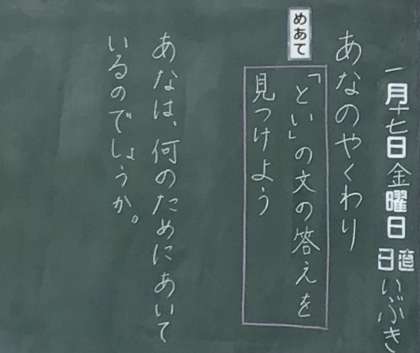 一月十七日金曜日 日直 いぶき
あなのやくわり
めあて
「とい」の文の答えを
見つけよう
あなは、何のためにあいて
いるのでしょうか。